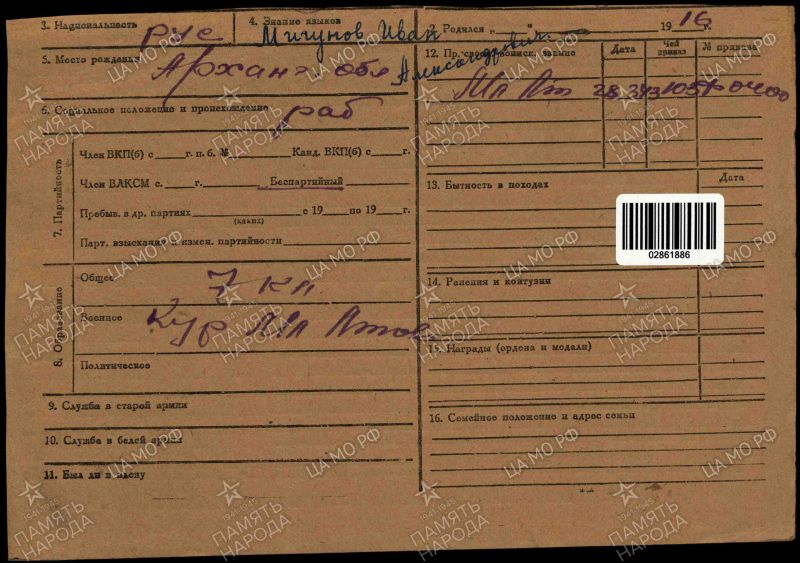 3. Национальность рус
4. Знание языков
Мигунов Иван
Александрович
2. Родился „ “ 1916 г.
5. Место рождения Арханг обл
6. Социальное положение и происхождение раб
7. Партийность
Член ВКП(б) с г. п. б. № Канд. ВКП(б) с г.
Член ВЛКСМ с г. Беспартийный
Пребыв. в др. партиях с 19 по 19 г.
(каких)
Парт. взыскания и измен. партийности
8. Образование
Общее 7 кл
Военное Кур Мл
Политическое
9. Служба в старой армии
10. Служба в белой армии
11. Был ли в плену
12. звание Дата Чей приказ № приказа
Мл
13. Бытность в походах Дата
02861886
14. Ранения и контузии
15. Награды (ордена и медали)
16. Семейное положение и адрес семьи
ПАМЯТЬ НАРОДА
1941-1945
ЦА МО РФ